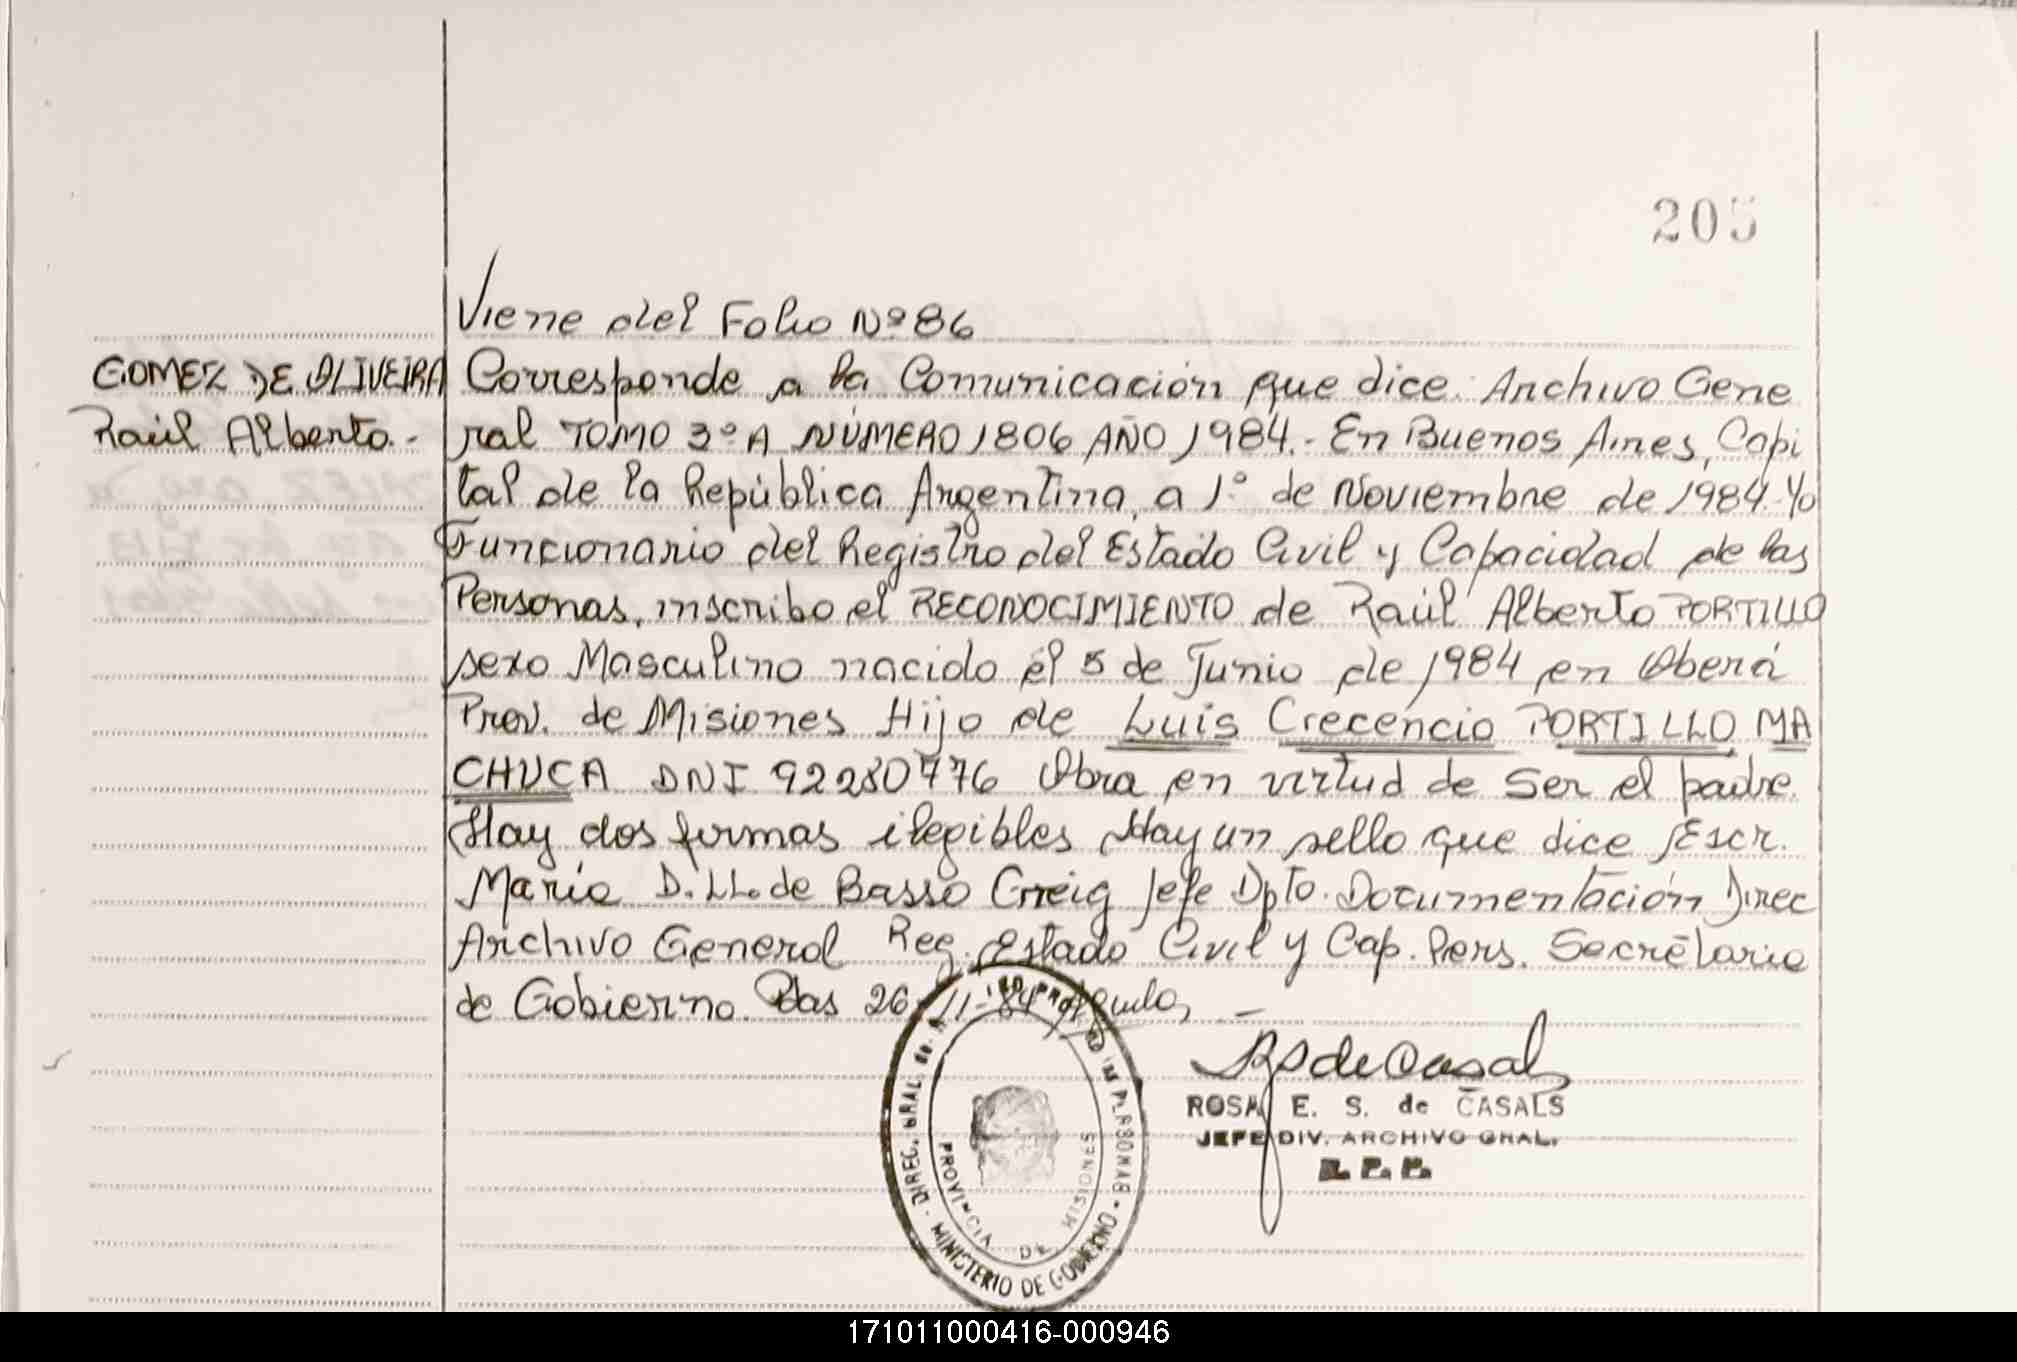 205
Viene del Folio Nº 86
GOMEZ DE OLIVEIRA
Raúl Alberto.-
Corresponde a la Comunicación que dice: Archivo Gene
ral TOMO 3º A NÚMERO 1806 AÑO 1984.- En Buenos Aires, Capi
tal de la República Argentina, a 1º de Noviembre de 1984. Yo
Funcionario del Registro del Estado Civil y Capacidad de las
Personas, inscribo el RECONOCIMIENTO de Raúl Alberto PORTILLO
sexo Masculino nacido el 5 de Junio de 1984 en Oberá
Prov. de Misiones Hijo de Luis Crecencio PORTILLO MA
CHUCA DNI 92280776 Obra en virtud de Ser el padre.
Hay dos firmas ilegibles Hay un sello que dice Escr.
María D. LL. de Basso Greig Jefe Dpto. Documentación Direc
Archivo General Reg. Estado Civil y Cap. Pers. Secretaria
de Gobierno. Pdas 26-11-84
ROSA E. S. de CASALS
JEFE DIV. ARCHIVO GRAL.
DIREC. GRAL. de
PERSONAS
MINISTERIO DE GOBIERNO
PROVINCIA DE MISIONES
171011000416-000946